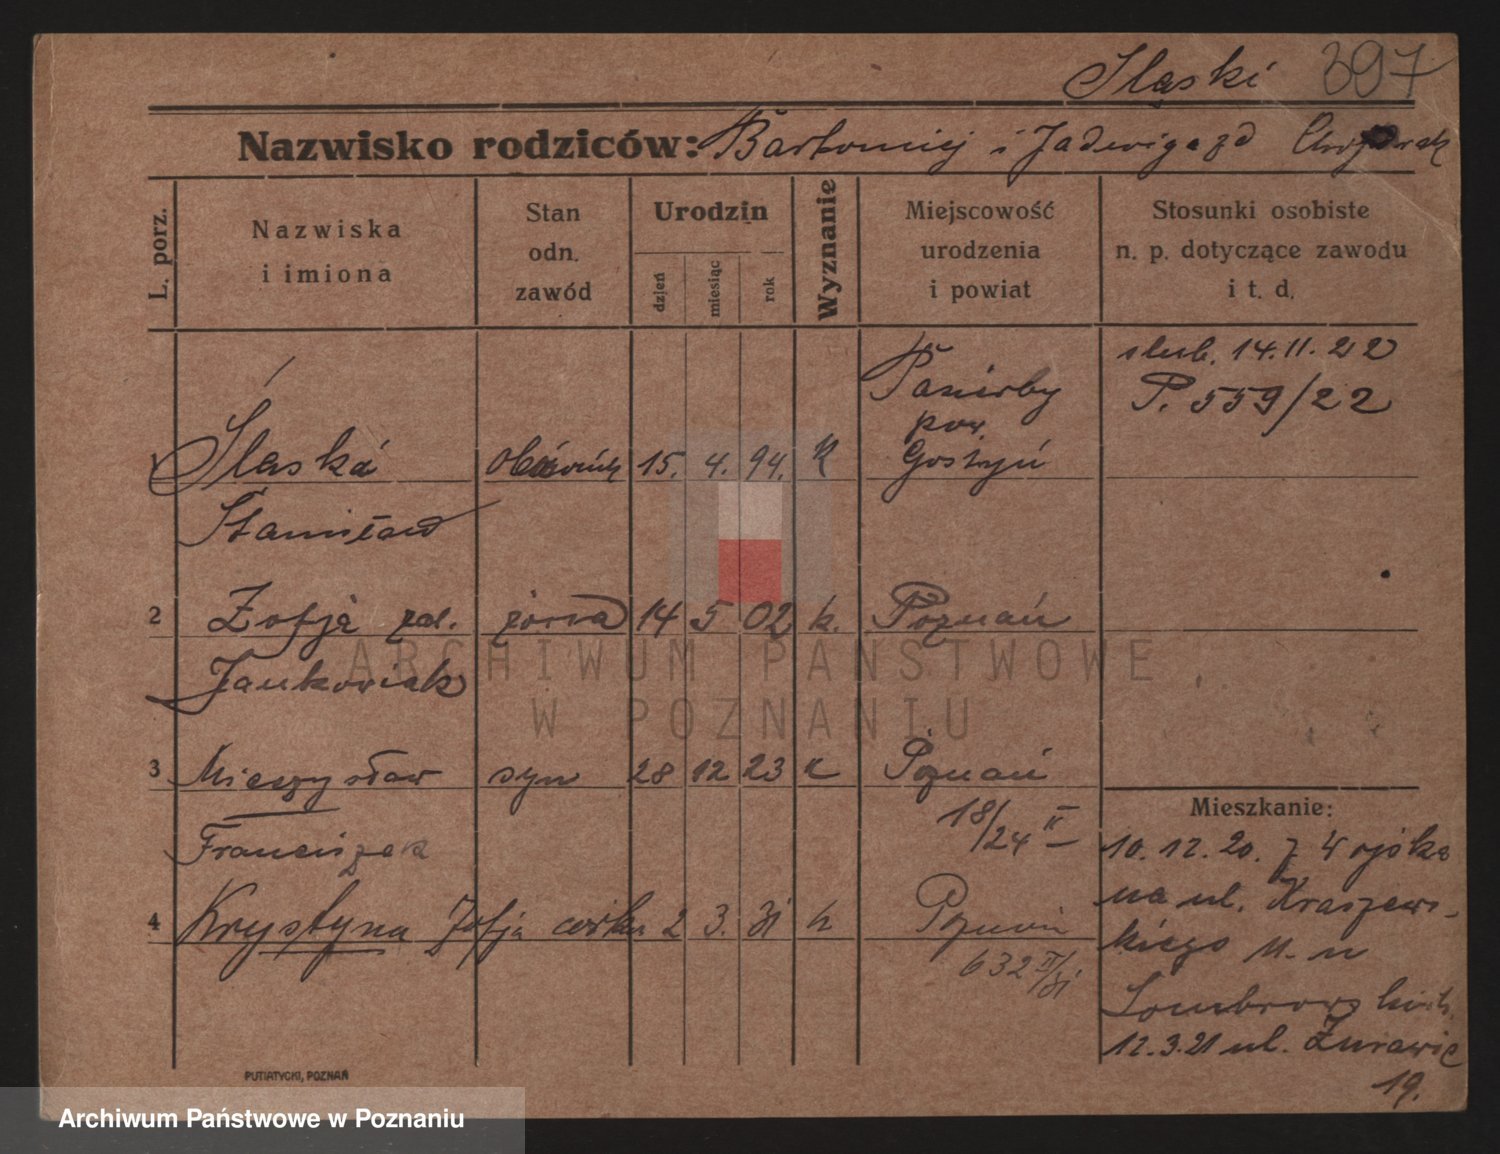 Śląski 397
Nazwisko rodziców: Bartomiej i Jadwiga zd
L. porz.
Nazwiska
i imiona
Stan
odn.
zawód
Urodzin
dzień
miesiąc
rok
Wyznanie
Miejscowość
urodzenia
i powiat
Stosunki osobiste
n. p. dotyczące zawodu
i t. d.
ślub. 14.11.22
P. 559/22
pow.
1 Śląski 15. 4. 94. K Gostyń
Stanisław
2 Zofja zd. żona 14 5 02 k. Poznań
Jankowiak
3 Mieczysław syn 28 12 23 K Poznań
18/24 II
Franciszek
4 Krystyna Zofja córka 2 3. 31 k Poznań
632 II/31
Mieszkanie:
10.12.20. z Wojska
na ul. Kraszews-
kiego 11. u
12.3.21 ul. Żurawia
19.
PUTIATYCKI, POZNAŃ
ARCHIWUM PAŃSTWOWE
W POZNANIU
Archiwum Państwowe w Poznaniu